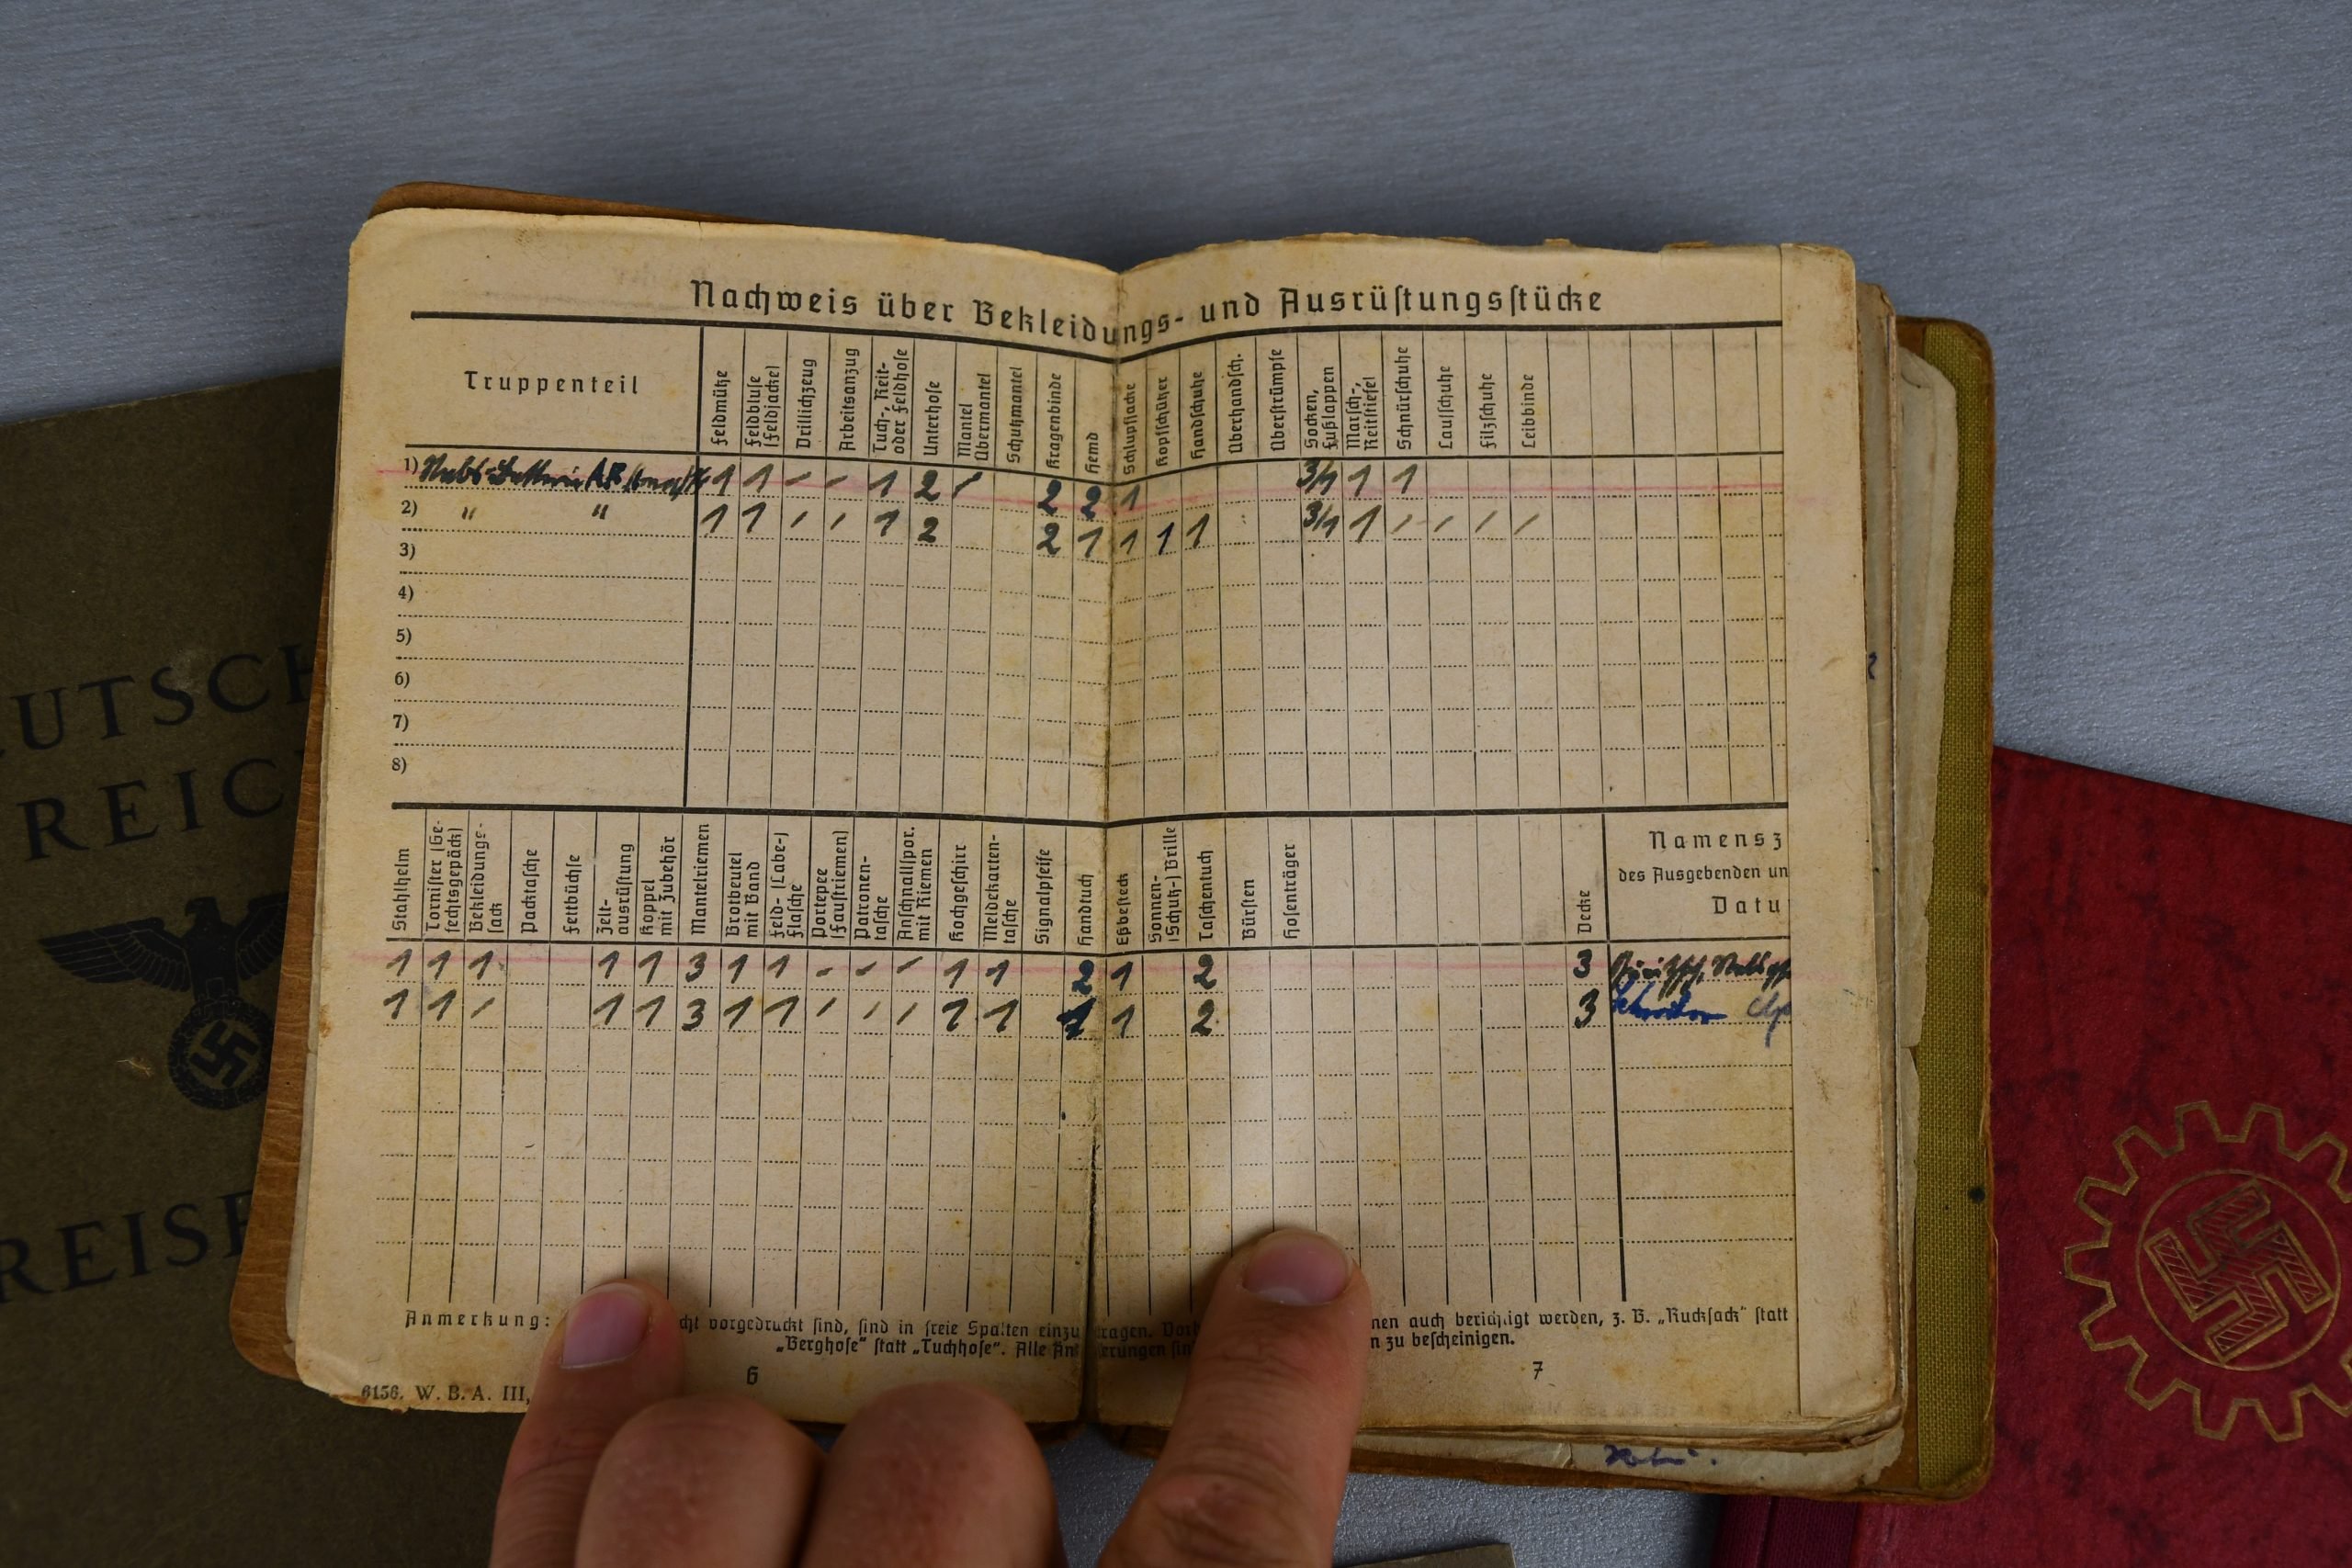 Nachweis über Bekleidungs- und Ausrüstungsstücke
Truppenteil
Feldmütze
Feldbluse (Feldjacke)
Drillichzeug
Arbeitsanzug
Tuch-, Reit- oder Feldhose
Unterhose
Mantel Übermantel
Schutzmantel
Kragenbinde
Hemd
Schlupfjacke
Kopfschützer
Handschuhe
Überhandsch.
Überstrümpfe
Socken, Fußlappen
Marsch-, Reitstiefel
Schnürschuhe
Laufschuhe
Filzschuhe
Leibbinde
1) 1 1 – – 1 2 / 2 2 1 3/1 1 1
2) " " 1 1 / / 1 2 2 1 1 1 1 3/1 1 / / / /
3)
4)
5)
6)
7)
8)
Stahlhelm
Tornister (Gefechtsgepäck)
Bekleidungssack
Packtasche
Fettbüchse
Zeltausrüstung
Koppel mit Zubehör
Mantelriemen
Brotbeutel mit Band
Feld- (Labe-) flasche
Portepee (Faustriemen)
Patronentasche
Anschnallspor. mit Riemen
Kochgeschirr
Meldekartentasche
Signalpfeife
Handtuch
Eßbesteck
Sonnen- (Schutz-) Brille
Taschentuch
Bürsten
Hosenträger
Decke
Namensz
des Ausgebenden un
Datu
1 1 1 1 1 3 1 1 – – – 1 1 2 1 2 3
1 1 / 1 1 3 1 1 / / / 1 1 1 1 2 3
Anmerkung: cht vorgedruckt sind, sind in freie Spalten einzutragen. nen auch berichtigt werden, z. B. „Rucksack" statt
„Berghose" statt „Tuchhose". Alle n zu bescheinigen.
6
7
6156. W. B. A. III,
EUTSCH
REIC
REISE